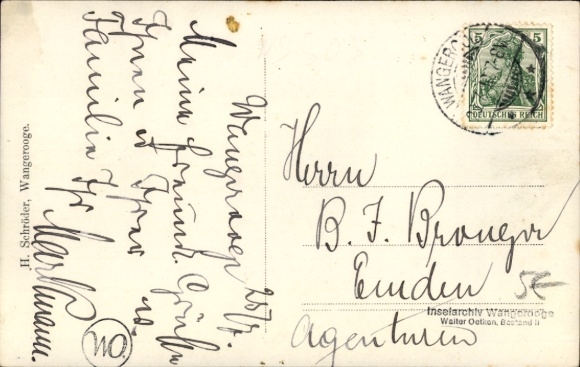 Wangerooge 25/7.
Meine freundl. Grüße
Ihnen u. Ihrer w.
Familie Ihr
Markmann.
H. Schröder, Wangerooge.
5 5
DEUTSCHES REICH
WANGEROOGE
Herrn
B. J. Bronger
Emden
Agenturen
Inselarchiv Wangerooge
Walter Oetken, Bestand II